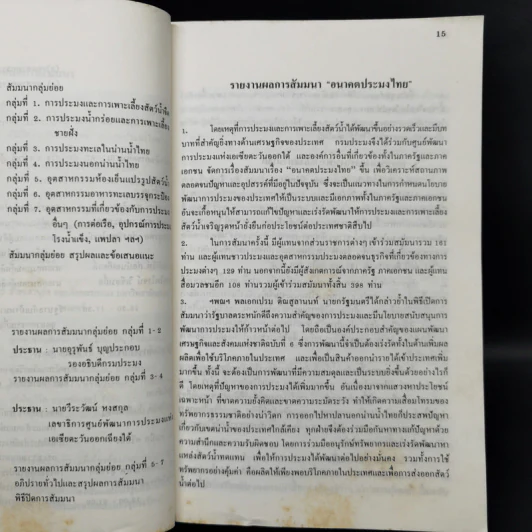 สัมมนากลุ่มย่อย
กลุ่มที่ 1. การประมงและการเพาะเลี้ยงสัตว์น้ำจืด
กลุ่มที่ 2. การประมงน้ำกร่อยและการเพาะเลี้ยง
ชายฝั่ง
กลุ่มที่ 3. การประมงทะเลในน่านน้ำไทย
กลุ่มที่ 4. การประมงนอกน่านน้ำไทย
กลุ่มที่ 5. อุตสาหกรรมห้องเย็นแปรรูปสัตว์น้ำ
กลุ่มที่ 6. อุตสาหกรรมอาหารทะเลบรรจุกระป๋อง
กลุ่มที่ 7. อุตสาหกรรมที่เกี่ยวข้องกับการประมง
อื่นๆ (การต่อเรือ, อุปกรณ์การประมง
โรงน้ำแข็ง, แพปลา ฯลฯ)
สัมมนากลุ่มย่อย สรุปผลและข้อเสนอแนะ
รายงานผลการสัมมนากลุ่มย่อย กลุ่มที่ 1-2
ประธาน : นายอุรุพันธ์ บุญประกอบ
รองอธิบดีกรมประมง
รายงานผลการสัมมนากลุ่มย่อย กลุ่มที่ 3-4
ประธาน : นายวีระวัฒน์ หงสกุล
เลขาธิการศูนย์พัฒนาการประมงแห่ง
เอเชียตะวันออกเฉียงใต้
รายงานผลการสัมมนากลุ่มย่อย กลุ่มที่ 5-7
อภิปรายทั่วไปและสรุปผลการสัมมนา
พิธีปิดการสัมมนา
15
รายงานผลการสัมมนา "อนาคตประมงไทย"
1. โดยเหตุที่การประมงและการเพาะเลี้ยงสัตว์น้ำได้พัฒนาขึ้นอย่างรวดเร็วและมีบท
บาทที่สำคัญยิ่งทางด้านเศรษฐกิจของประเทศ กรมประมงจึงได้ร่วมกับศูนย์พัฒนา
การประมงแห่งเอเชียตะวันออกใต้ และองค์การอื่นที่เกี่ยวข้องทั้งในภาครัฐและภาค
เอกชน จัดการเรื่องสัมมนาเรื่อง "อนาคตประมงไทย" ขึ้น เพื่อวิเคราะห์สถานภาพ
ตลอดจนปัญหาและอุปสรรค์ที่มีอยู่ในปัจจุบัน ซึ่งจะเป็นแนวทางในการกำหนดนโยบาย
พัฒนาการประมงของประเทศให้เป็นระบบและมีเอกภาพทั้งในภาครัฐและภาคเอกชน
อันจะเกื้อหนุนให้สามารถแก้ไขปัญหาและเร่งรัดพัฒนาให้การประมงและการเพาะเลี้ยง
สัตว์น้ำเจริญรุดหน้ายั่งยืนก่อประโยชน์ต่อประเทศชาติสืบไป
2. ในการสัมมนาครั้งนี้ มีผู้แทนจากส่วนราชการต่างๆ เข้าร่วมสัมมนารวม 161
ท่าน และผู้แทนชาวประมงและอุตสาหกรรมประมงตลอดจนธุรกิจที่เกี่ยวข้องทางการ
ประมงต่างๆ 129 ท่าน นอกจากนี้ยังมีผู้สังเกตการณ์จากภาครัฐ ภาคเอกชน และผู้แทน
สื่อมวลชนอีก 108 ท่านรวมผู้เข้าร่วมสัมมนาทั้งสิ้น 398 ท่าน
3. ฯพณฯ พลเอกเปรม ติณสูลานนท์ นายกรัฐมนตรีได้กล่าวย้ำในพิธีเปิดการ
สัมมนาว่ารัฐบาลตระหนักถึงความสำคัญของการประมงและมีนโยบายสนับสนุนการ
พัฒนาการประมงให้ก้าวหน้าต่อไป โดยถือเป็นองค์ประกอบสำคัญของแผนพัฒนา
เศรษฐกิจและสังคมแห่งชาติฉบับที่ 6 ซึ่งการพัฒนานี้จำเป็นต้องเร่งรัดทั้งในด้านเพิ่มผล
ผลิตเพื่อใช้บริโภคภายในประเทศ และเพื่อเป็นสินค้าออกนำรายได้เข้าประเทศเพิ่ม
มากขึ้น ทั้งนี้ จะต้องเป็นการพัฒนาที่มีความสมดุลและเป็นระบบยิ่งขึ้นด้วยอย่างไรก็
ดี โดยเหตุที่ปัญหาของการประมงได้เพิ่มมากขึ้น อันเนื่องมาจากแสวงหาประโยชน์
เฉพาะหน้า ที่ขาดความยั้งคิดและขาดความระมัดระวัง ทำให้เกิดความเสื่อมโทรมของ
ทรัพยากรธรรมชาติอย่างน่าวิตก การออกไปหาปลานอกน่านน้ำไทยก็ประสพปัญหา
เกี่ยวกับเขตน่านน้ำของประเทศใกล้เคียง ทุกฝ่ายจึงต้องร่วมมือกันหาทางแก้ปัญหาด้วย
ความสำนึกและความรับผิดชอบ โดยการร่วมมืออนุรักษ์ทรัพยากรและเร่งรัดพัฒนาหา
แหล่งสัตว์น้ำทดแทน เพื่อให้การประมงได้พัฒนาต่อไปอย่างมั่นคง รวมทั้งการใช้
ทรัพยากรอย่างคุ้มค่า คือผลิตให้เพียงพอบริโภคภายในประเทศและเพื่อการส่งออกสัตว์
น้ำต่อไป